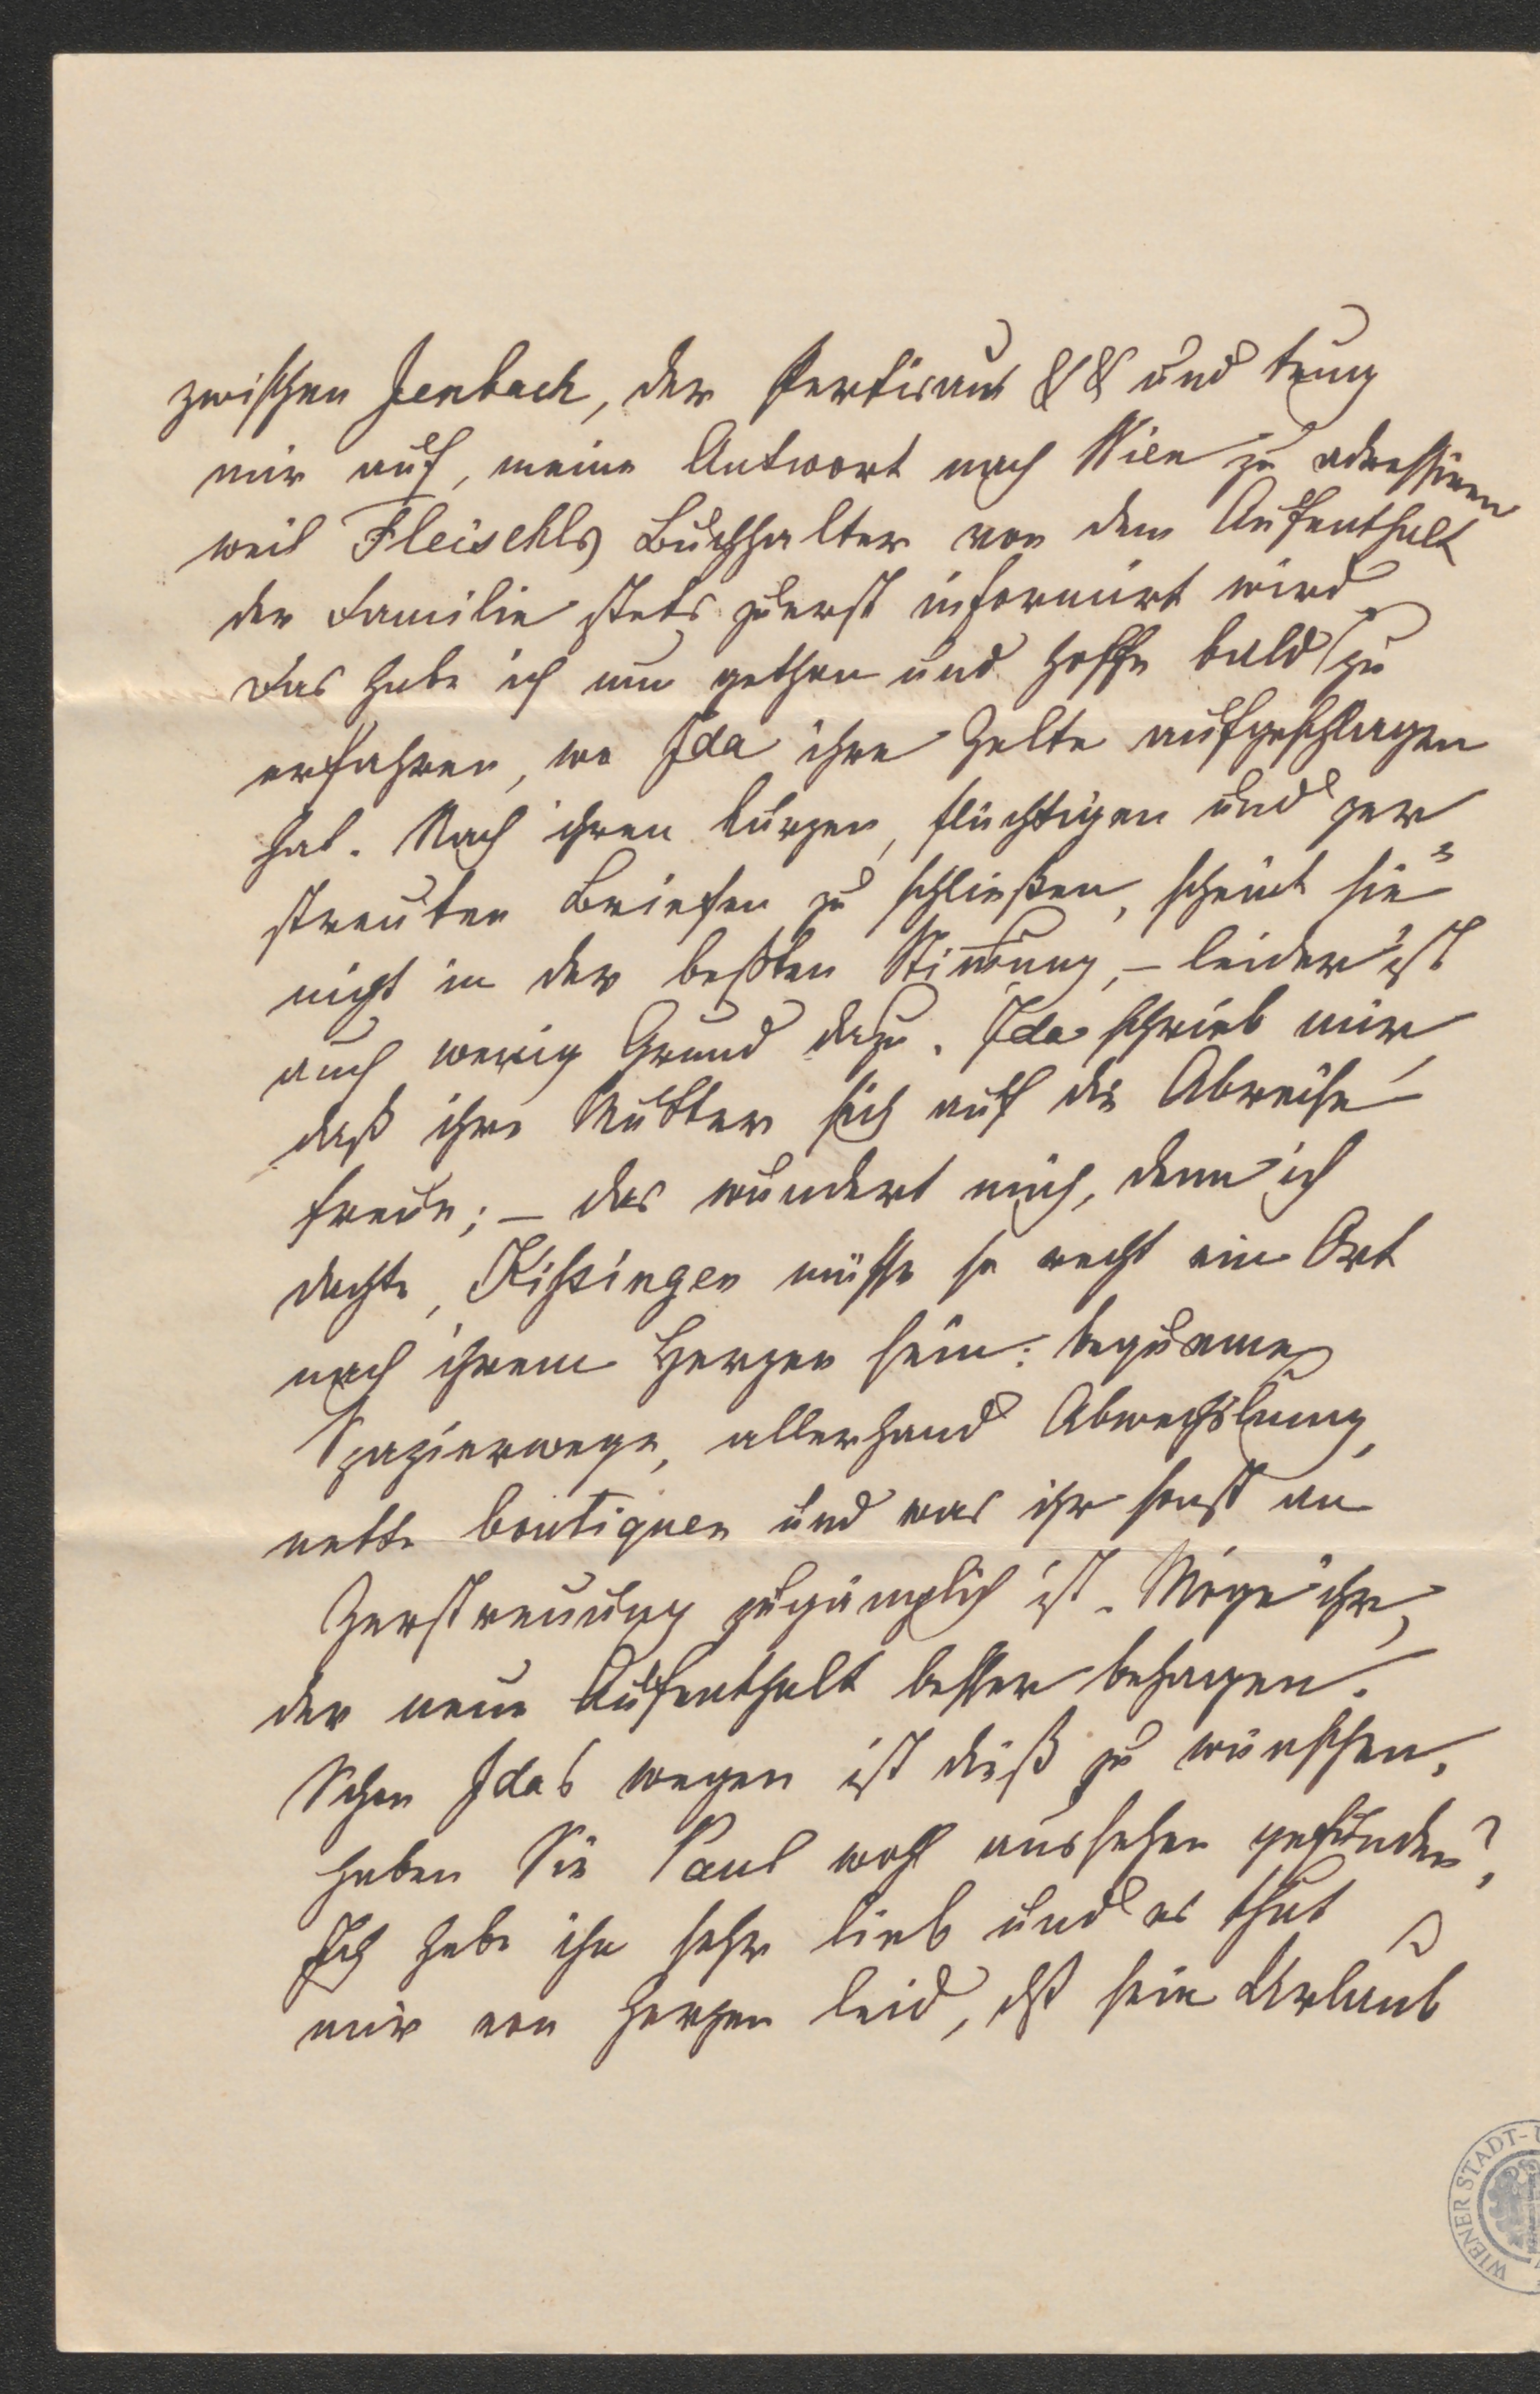 zwischen Jenbach, der Pertisau && und trug
mir auf, meine Antwort nach Wien zu adressiren
weil Fleischls Buchhalter von dem Aufenthalt
der Familie stets zuerst informirt wird
Das habe ich nun gethan und hoffe bald zu
erfahren, wo Ida ihre Zelte aufgeschlagen
hat. Nach ihren kurzen, flüchtigen und zer
streuten Briefen zu schließen, scheint sie
nicht in der beßten Stimmung, – leider ist
auch wenig Grund dazu. Ida schrieb mir,
daß ihre Mutter sich auf die Abreise
freue; – das wundert mich, denn ich
dachte, Kissingen müsse so recht ein Ort
nach ihrem Herzen sein: bequeme
Spazierwege, allerhand Abwechslung,
nette boutiquen und was ihr sonst an
Zerstreuung zugänglich ist. Möge ihr,
der neue Aufenthalt besser behagen.
Schon Idas wegen ist dieß zu wünschen.
Haben Sie Paul wohl aussehen gefunden?
Ich habe ihn sehr lieb und es thut
mir von Herzen leid, daß sein Urlaub
WIENER STADT-